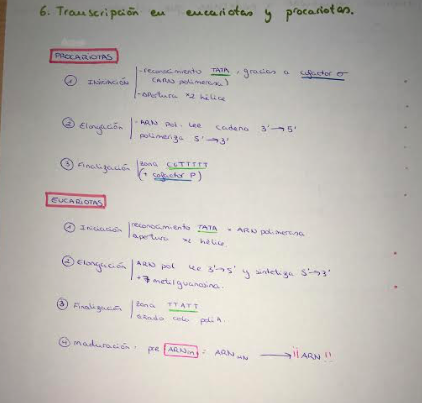 6. Transcripción en eucariotas y procariotas.
PROCARIOTAS
① Iniciación | -reconocimiento TATA - gracias a cofactor σ
(ARN polimerasa)
-apertura x2 hélice
② Elongación | -ARN pol. lee cadena 3' → 5'
polimeriza 5' → 3'
③ Finalización | zona
(+ cofactor P)
EUCARIOTAS
① Iniciación | reconocimiento TATA + ARN polimerasa
apertura hélice.
② Elongación | ARN pol lee 3' → 5' y sintetiza 5' → 3'
+ 7 metilguanosina.
③ Finalización | zona TTATT
añade cola poliA.
④ Maduración: pre ARNm = ARN → ¡¡ARN!!